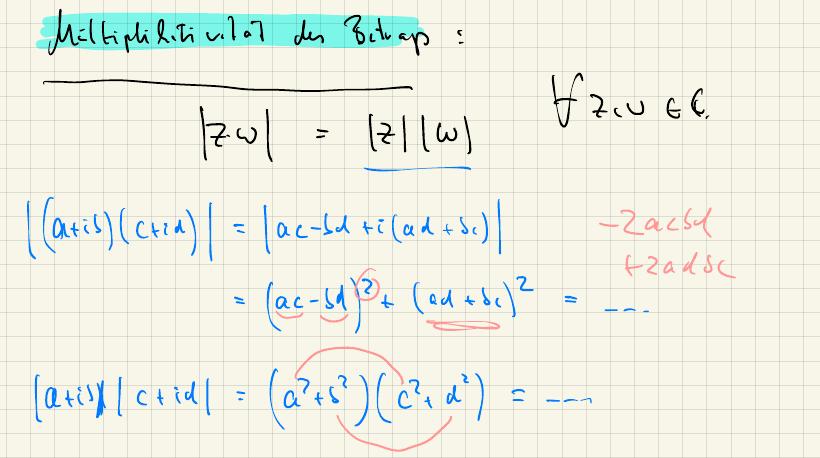 Multiplikativität des Betrags :
|z·w| = |z| |w| ∀ z, w ∈ ℂ.
|(a+ib)(c+id)| = |ac-bd+i(ad+bc)| -2acbd
+2adbc
= (ac-bd)² + (ad+bc)² = ---
|a+ib| |c+id| = (a²+b²)(c²+d²) = ---